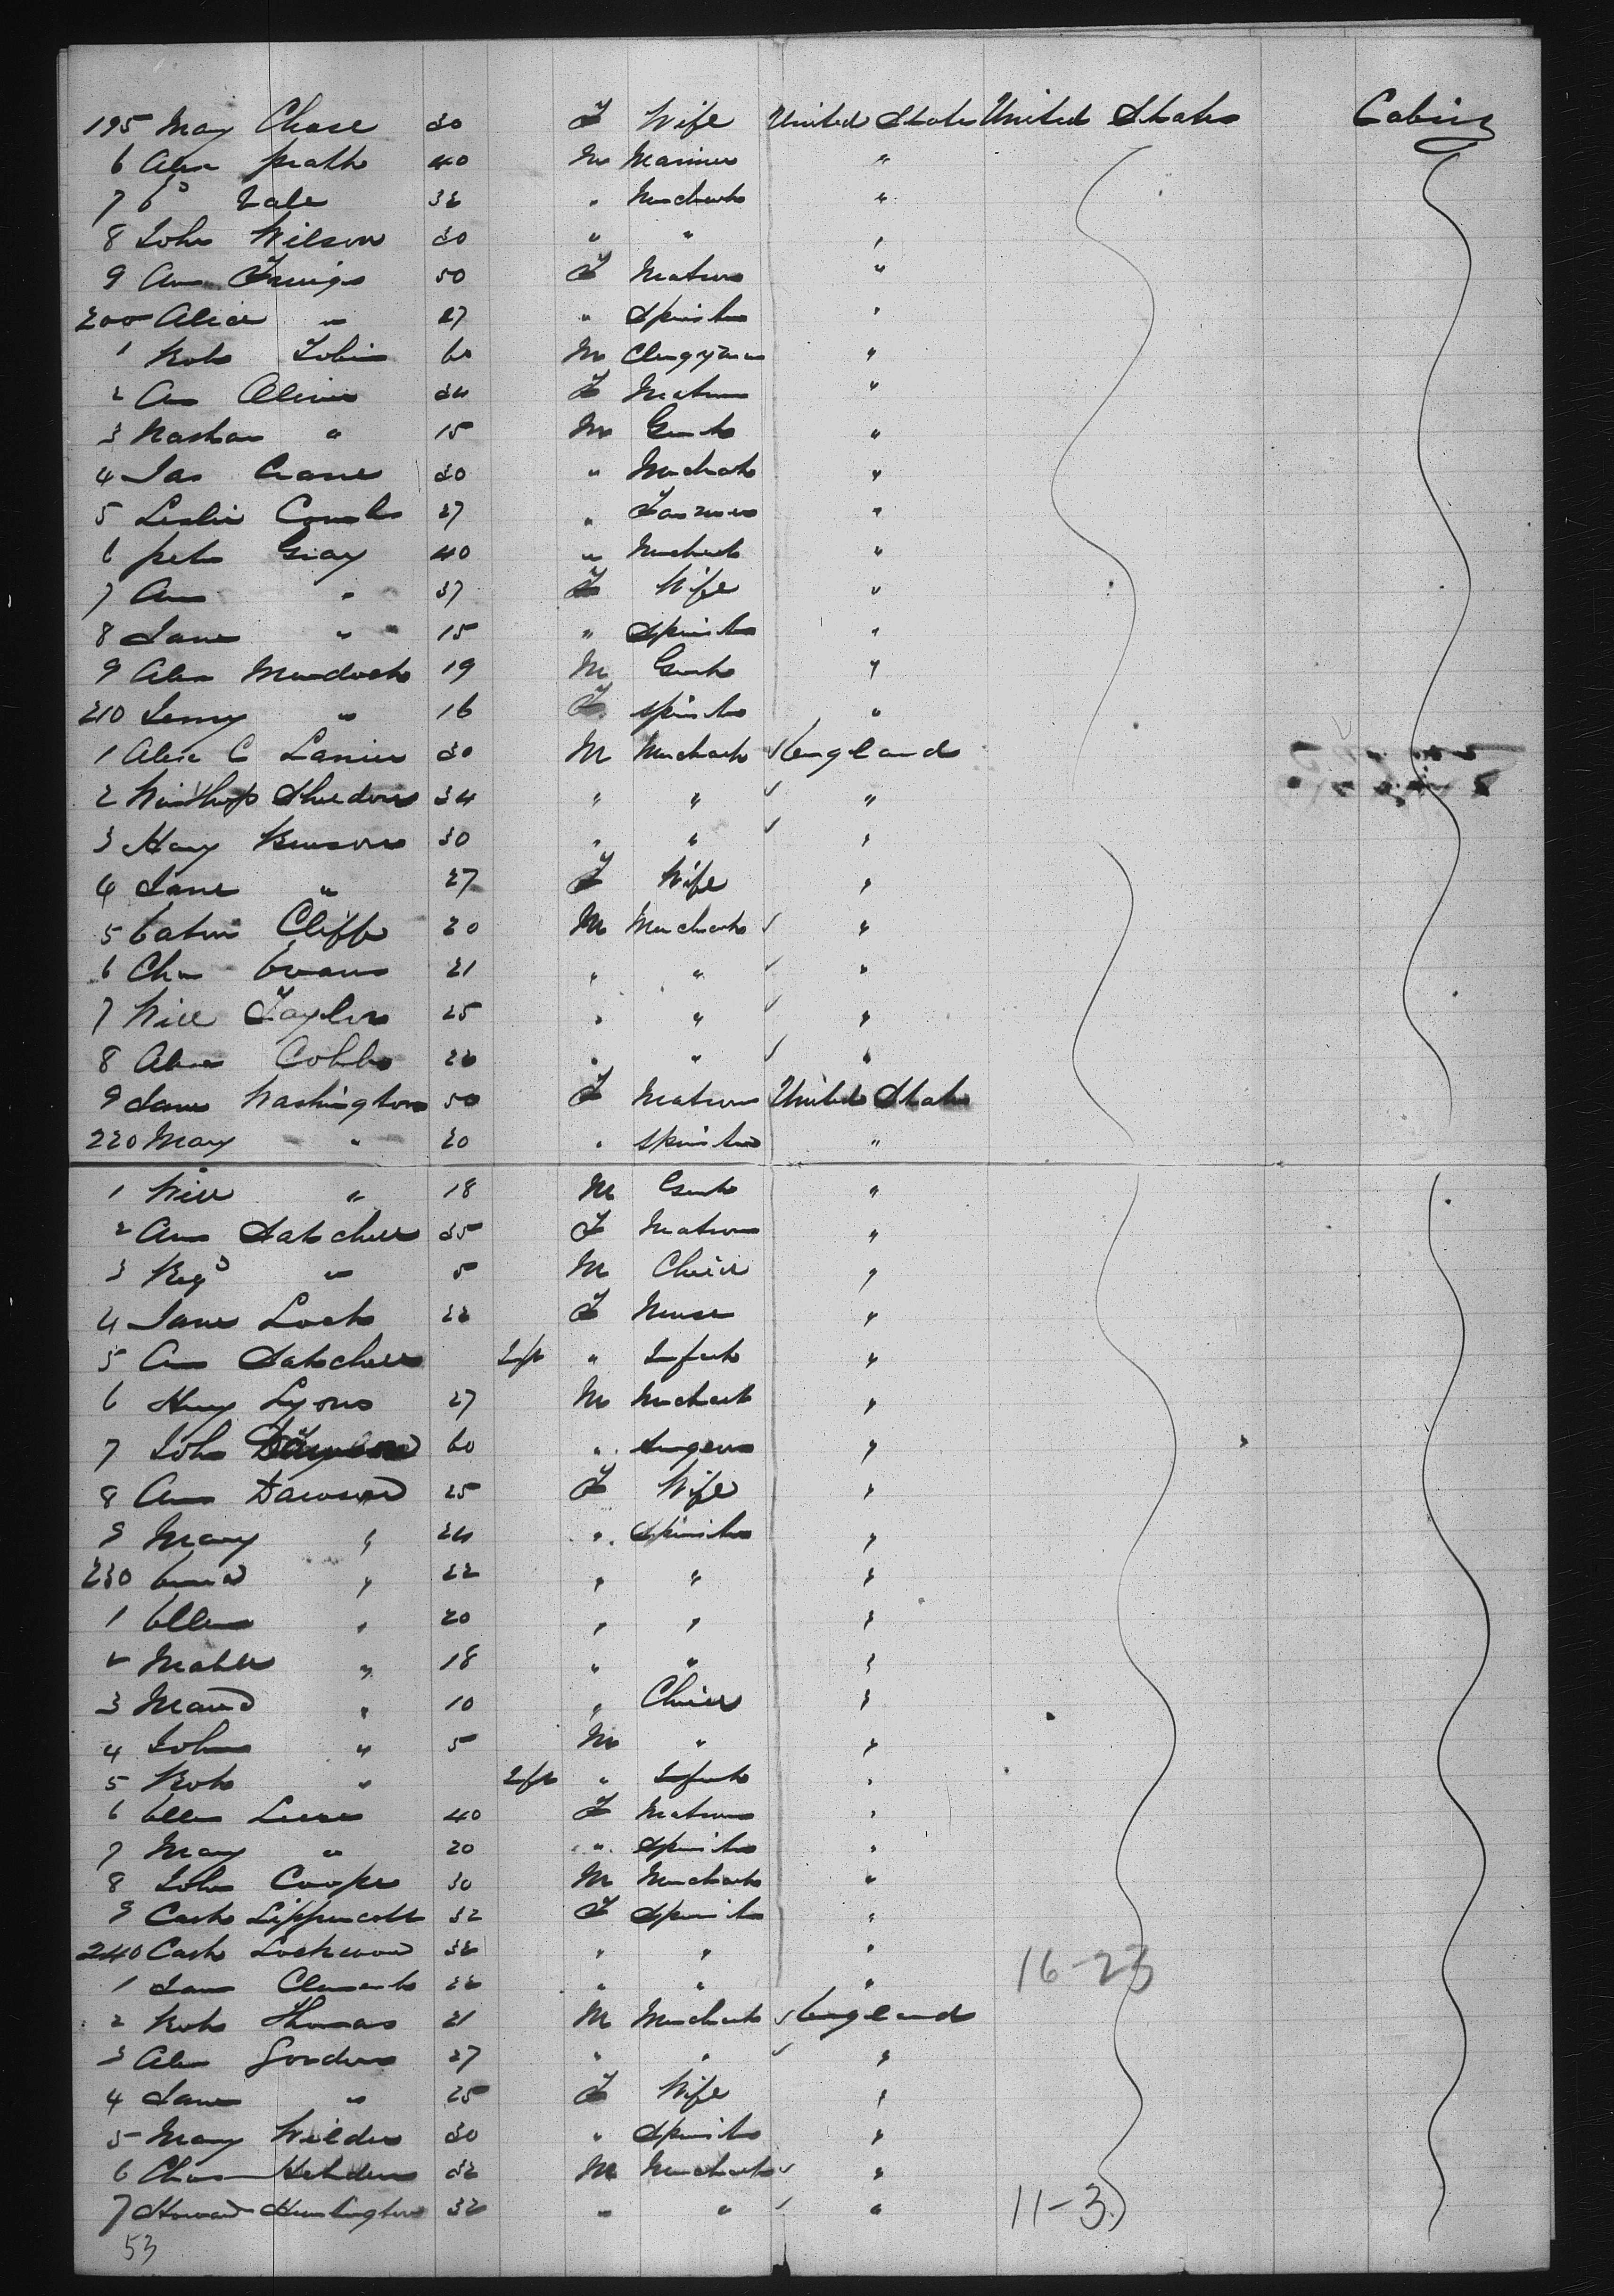 195 May Chase 30 F Wife United States United States Cabin
6 Alex Pratt 40 M Mariner "
7 Ed Vale 32 " Merchant "
8 John Wilson 30 " " "
9 Ann 50 F Matron "
200 Alice " 27 " Spinster "
1 Robt Tobin 60 M Clergyman "
2 Ann Oliver 34 F Matron "
3 Nathan " 15 M Gent "
4 Jas Crane 30 " Merchant "
5 Leslie Combs 27 " Farmer "
6 Pete Gray 40 " Merchant "
7 Ann " 37 F Wife "
8 Jane " 15 " Spinster "
9 Alex Murdock 19 M Gent "
210 Jenny " 16 F Spinster "
1 Alex C Lanier 30 M Merchant ✓ England
2 Winthrop Sheldon 34 " " ✓ "
3 Harry Benson 30 " " ✓ "
4 Jane " 27 F Wife "
5 Eaton Cliffe 20 M Merchant ✓ "
6 Chas Evans 21 " " ✓ "
7 Will Taylor 25 " " ✓ "
8 Alex Cobb 26 " " ✓ "
9 Jane Washington 50 F Matron United States
220 Mary " 20 " Spinster "
1 Will " 18 M Gent "
2 Ann Satchell 35 F Matron "
3 Regd " 5 M Child "
4 Jane Lock 22 F Nurse "
5 Ann Satchell Inft " Infant "
6 Henry Lyons 27 M Merchant "
7 John 60 " Surgeon "
8 Ann Dawson 25 F Wife "
9 Mary " 24 " Spinster "
230 " 22 " " "
1 Ellen " 20 " " "
2 Mabel " 18 " " "
3 Maud " 10 " Child "
4 John " 5 M " "
5 Robt " Inft " Infant "
6 Ellen 40 F Matron "
7 Mary " 20 " Spinster "
8 John Cooper 30 M Merchant "
9 Cath Lippincott 32 F Spinster "
240 Cath Lockwood 32 " " "
1 Jane Clements 22 " " " 16-23
2 Robt Thomas 21 M Merchant ✓ England
3 Alex Gordon 27 " " ✓ "
4 Jane " 25 F Wife "
5 Mary Wilder 30 " Spinster "
6 Chas 32 M Merchant ✓ "
7 Howard Huntington 32 " " ✓ " 11-3
53